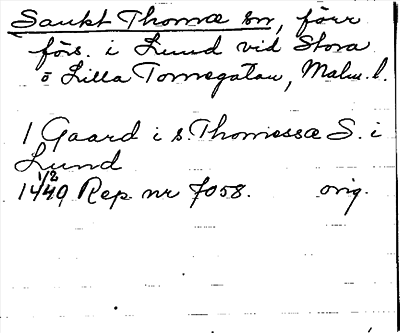 Sankt Thomæ sn, förr
förs. i Lund vid Stora
o Lilla Tomegatan, Malm. l.
1 Gaard i s. Thomessæ S. i
Lund
1/2
1440 Rep nr 7058. orig.